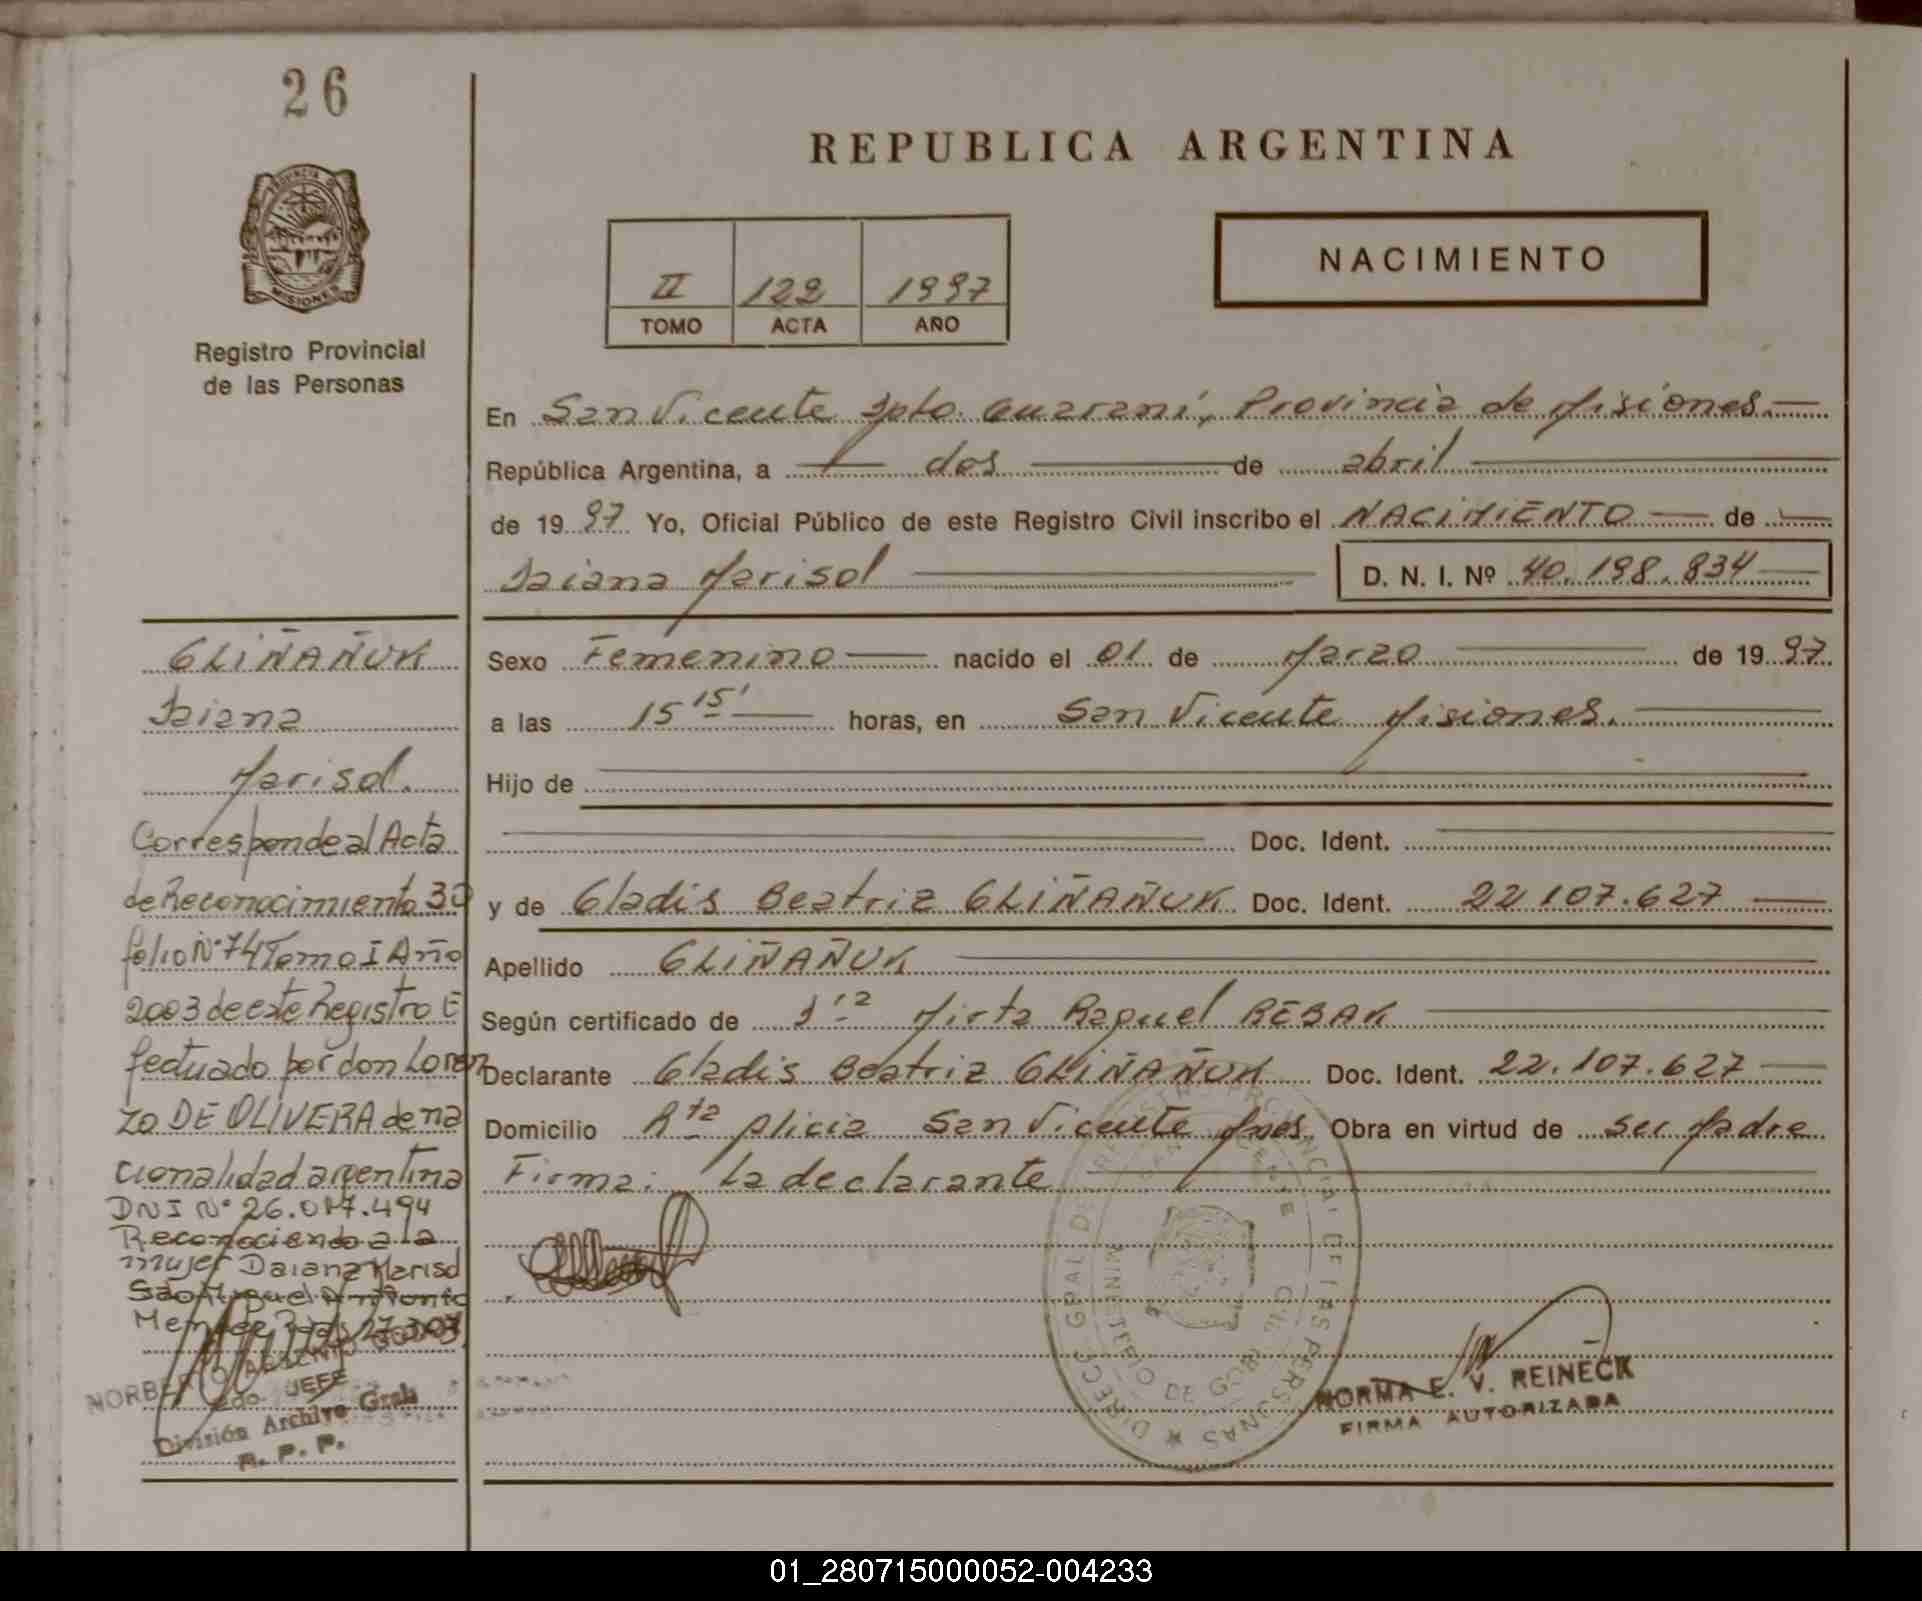 26
REPUBLICA ARGENTINA
PROVINCIA D
MISIONES
Registro Provincial
de las Personas
II 122 1997
TOMO ACTA AÑO
NACIMIENTO
En San Vicente Dpto. Guaraní, Provincia de Misiones.
República Argentina, a dos de abril
de 1997 Yo, Oficial Público de este Registro Civil inscribo el NACIMIENTO de
Daiana Marisol D. N. I. Nº 40.198.834
Sexo Femenino nacido el 01 de Marzo de 1997.
a las 15 15' horas, en San Vicente Misiones.
Hijo de
Doc. Ident.
y de Gladis Beatriz GLIÑAÑUK Doc. Ident. 22.107.627
Apellido GLIÑAÑUK
Según certificado de Dra Mirta Raquel REBAK
Declarante Gladis Beatriz GLIÑAÑUK Doc. Ident. 22.107.627
Domicilio Rta Alicia San Vicente Mnes. Obra en virtud de ser Madre
Firma: La declarante
GLIÑAÑUK
Daiana
Marisol.
Corresponde al Acta
de Reconocimiento 30
folio Nº 74 Tomo I Año
2003 de este Registro E
fectuado por don Loren
zo DE OLIVERA de na
cionalidad argentina
DNI Nº 26.017.494
Reconociendo a la
mujer Daiana Marisol
JEFE
División Archivo Gral
R. P. P.
NORMA E. V. REINECK
FIRMA AUTORIZADA
01_280715000052-004233